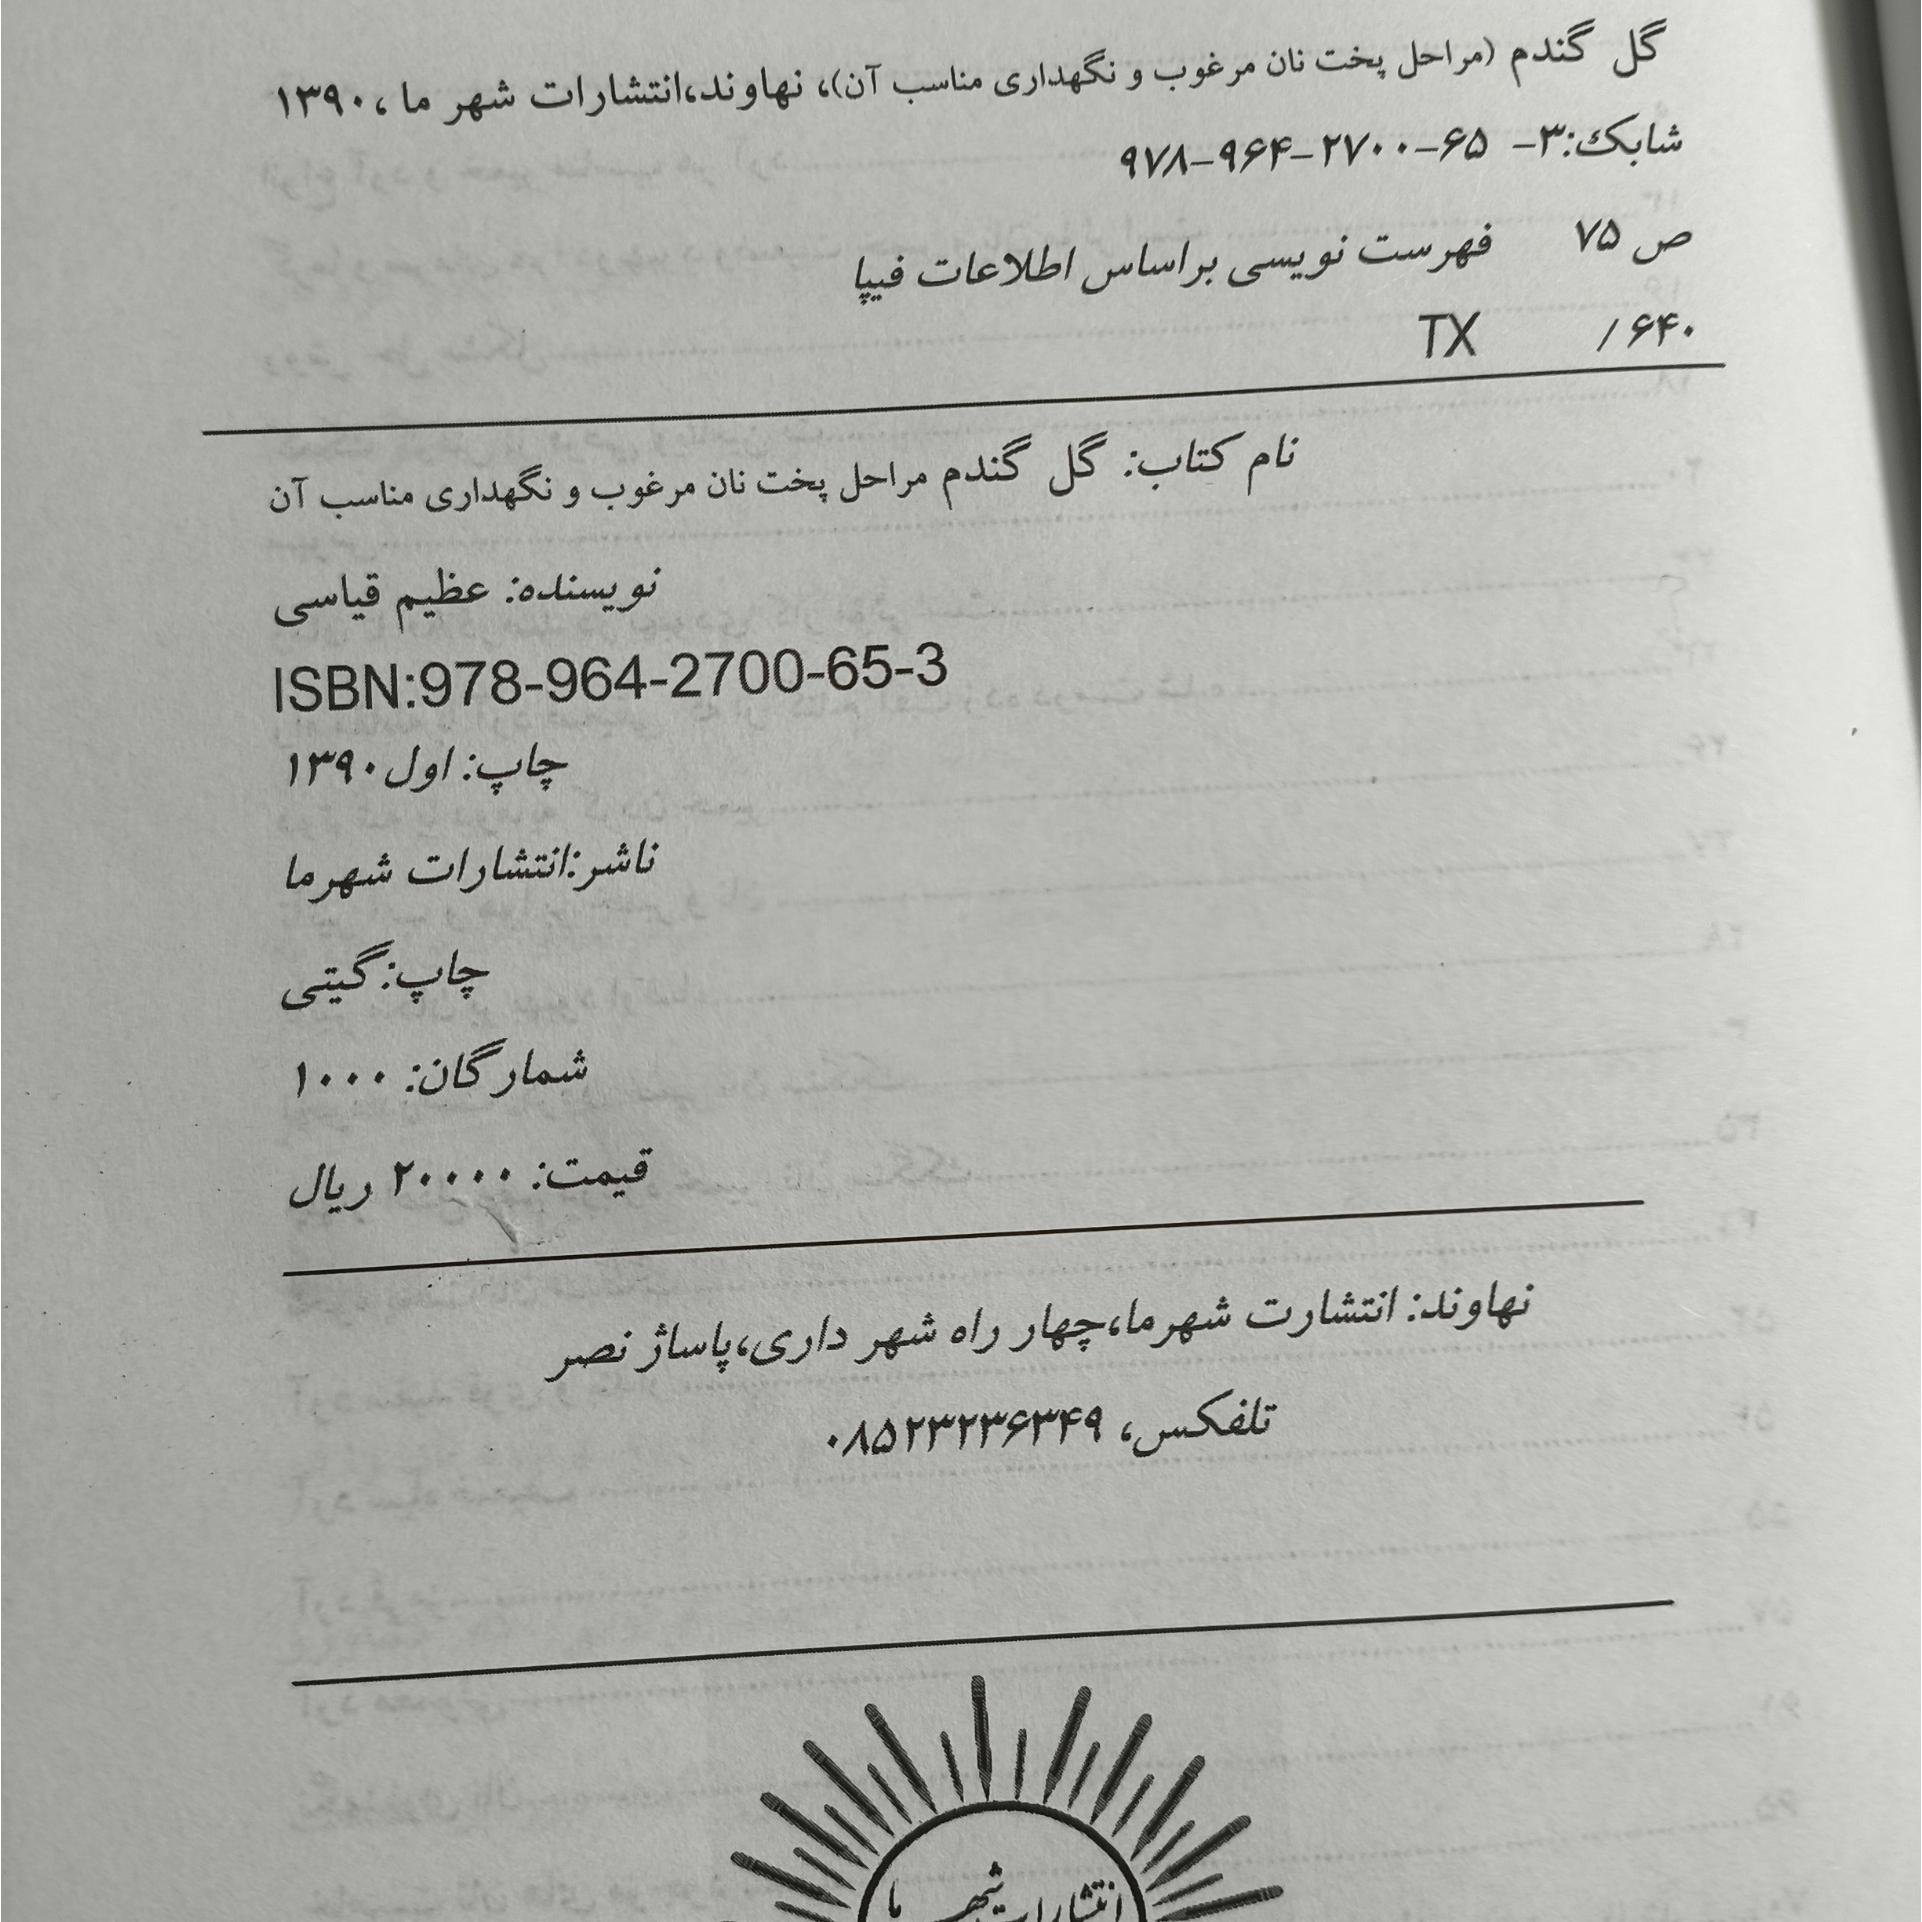 گل گندم (مراحل پخت نان مرغوب و نگهداری مناسب آن)، نهاوند،انتشارات شهر ما ،۱۳۹۰
شابک:۳- ۶۵-۲۷۰۰-۹۶۴-۹۷۸
ص ۷۵ فهرست نویسی براساس اطلاعات فیپا
۶۴۰ / TX
نام کتاب: گل گندم مراحل پخت نان مرغوب و نگهداری مناسب آن
نویسنده: عظیم قیاسی
ISBN:978-964-2700-65-3
چاپ: اول ۱۳۹۰
ناشر:انتشارات شهرما
چاپ:گیتی
شمارگان: ۱۰۰۰
قیمت: ۲۰۰۰۰ ریال
نهاوند: انتشارت شهرما،چهار راه شهر داری،پاساژ نصر
تلفکس، ۰۸۵۲۳۲۳۶۳۴۹
انتشارات شهر ما